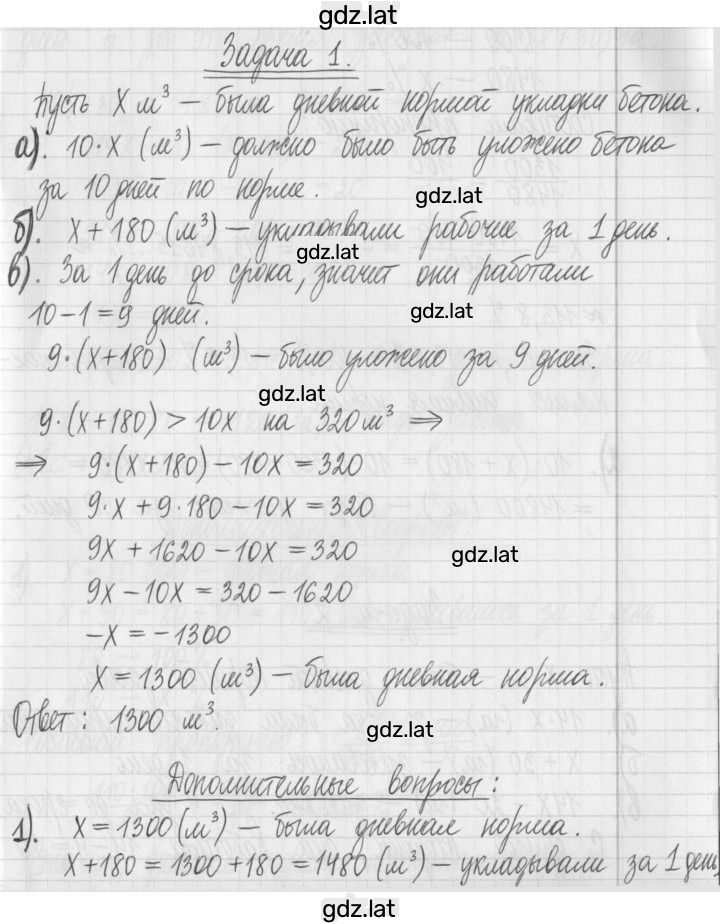 gdz.lat
Задача 1.
Пусть x м³ – была дневной нормой укладки бетона.
а). 10·x (м³) – должно было быть уложено бетона
за 10 дней по норме.
gdz.lat
б). x + 180 (м³) – укладывали рабочие за 1 день.
gdz.lat
в). За 1 день до срока, значит они работали
10 – 1 = 9 дней.
gdz.lat
9·(x+180) (м³) – было уложено за 9 дней.
gdz.lat
9·(x+180) > 10x на 320 м³ ⇒
⇒ 9·(x+180) – 10x = 320
9·x + 9·180 – 10x = 320
9x + 1620 – 10x = 320
gdz.lat
9x – 10x = 320 – 1620
–x = –1300
x = 1300 (м³) – была дневная норма.
Ответ: 1300 м³.
gdz.lat
Дополнительные вопросы:
1). x = 1300 (м³) – была дневная норма.
x + 180 = 1300 + 180 = 1480 (м³) – укладывали за 1 день,
gdz.lat